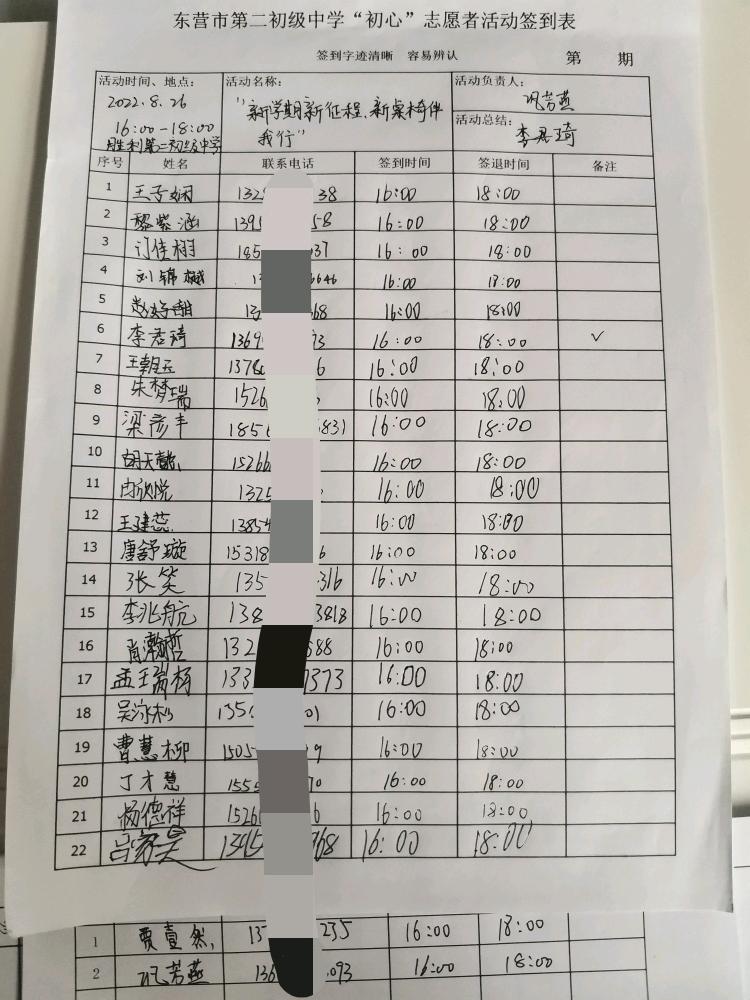 东营市第二初级中学“初心”志愿者活动签到表
签到字迹清晰 容易辨认 第 期
活动时间、地点: 活动名称: 活动负责人:
2022.8.26 "新学期新征程、新桌椅伴 巩芳燕
16:00-18:00 我行" 活动总结:
胜利第二初级中学 李君琦
序号 姓名 联系电话 签到时间 签退时间 备注
1 132 38 16:00 18:00
2 黎紫涵 139 58 16:00 18:00
3 许佳栩 185 037 16:00 18:00
4 刘锦樾 1 6646 16:00 18:00
5 13 68 16:00 18:00
6 李君琦 1369 73 16:00 18:00 ✓
7 王朝玉 1378 6 16:00 18:00
8 朱梦瑞 1526 16:00 18:00
9 梁彦丰 185 831 16:00 18:00
10 胡天懿 15266 16:00 18:00
11 欣悦 132 16:00 18:00
12 王建蕊 1385 16:00 18:00
13 唐舒璇 15318 6 16:00 18:00
14 张笑 135 316 16:00 18:00
15 李兆航 138 3818 16:00 18:00
16 肖瀚哲 132 688 16:00 18:00
17 孟王瑞杨 133 7373 16:00 18:00
18 吴泳杉 135 01 16:00 18:00
19 曹慧柳 1505 9 16:00 18:00
20 丁才慧 155 70 16:00 18:00
21 杨德祥 1526 6 16:00 18:00
22 吕家昊 1395 768 16:00 18:00
1 贾壹然 13 235 16:00 18:00
2 巩芳燕 136 093 16:00 18:00